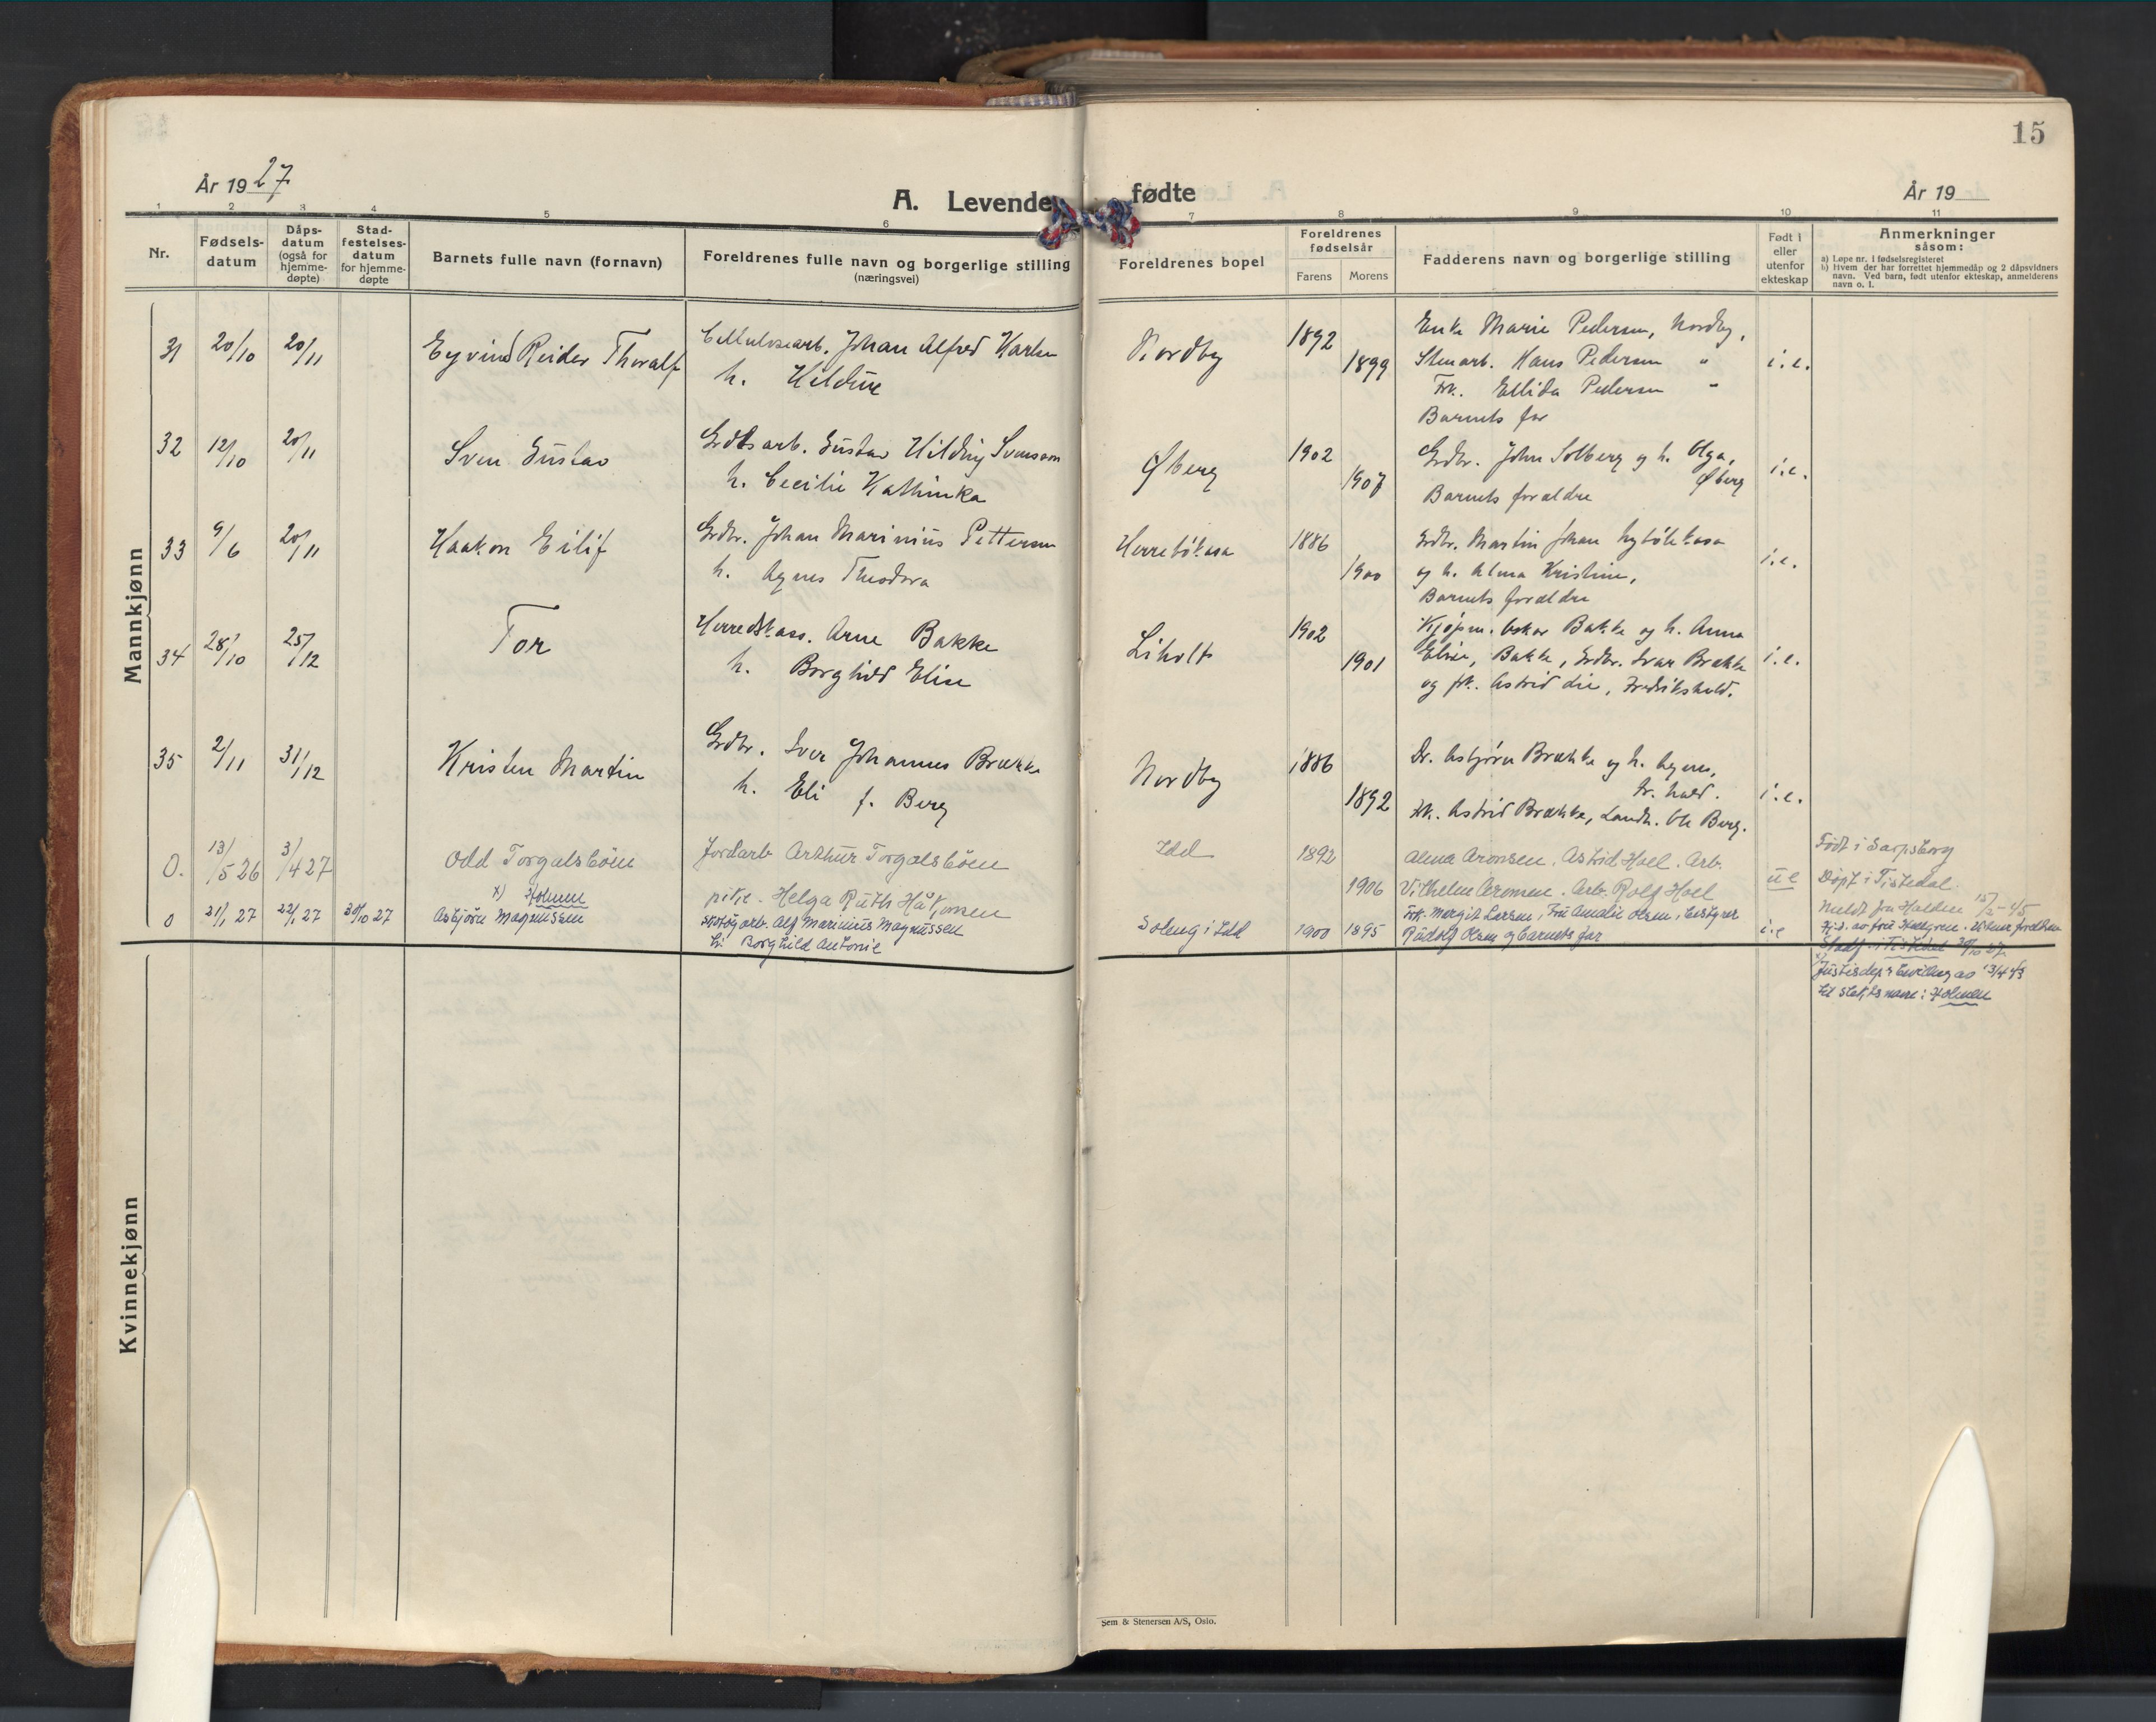 15
År 1927
A. Levende fødte
År 19
1 2 3 4 5 6 7 8 9 10 11
Nr.
Fødsels-
datum
Dåps-
datum
(også for
hjemme-
døpte)
Stad-
festelses-
datum
for hjemme-
døpte
Barnets fulle navn (fornavn)
Foreldrenes fulle navn og borgerlige stilling
(næringsvei)
Foreldrenes bopel
Foreldrenes
fødselsår
Farens
Morens
Fadderens navn og borgerlige stilling
Født i
eller
utenfor
ekteskap
Anmerkninger
såsom:
a) Løpe nr. i fødselsregisteret
b) Hvem der har forrettet hjemmedåp og 2 dåpsvidners
navn. Ved barn, født utenfor ekteskap, anmelderens
navn o. l.
Mannkjønn
31 20/10 20/11 Eyvind Reider Thoralf
Cellulosearb. Johan Alfred Karlsen
h. Hildur
Nordby 1892 1899
Enke Marie Pedersen, Nordby,
Stenarb. Hans Pedersen "
Frk. Ellida Pedersen "
Barnets far
i.e.
32 12/10 20/11 Sven Gustav
Grdbs arb. Gustav Hilding Svensson
h. Cecilie Kathinka
Øberg 1902 1907
Grdbr. John Solberg og h. Olga,
Øberg
Barnets forældre
i.e.
33 9/6 20/11 Haakon Eilif
Grdbr. Johan Marinius Pettersen
h. Agnes Theodora
Herrebøkasa 1886 1900
Grdbr. Martin Johan
og h. Alma Kristine,
Barnets forældre
i.e.
34 28/10 25/12 Tor
Herredskass. Arne Bakke
h. Borghild Elise
Liholt 1902 1901
Kjøpm. Oskar Bakke og h. Anna
Elise, Bakke, Grdbr. Ivar Brække
og frk. Astrid die, Fredrikshald.
i.e.
35 2/11 31/12 Kristen Martin
Grdbr. Iver Johannes Brække
h. Eli f. Berg
Nordby 1886 1892
Dr. Asbjørn Brække og h. Agnes,
Fr.hald.
Frk. Astrid Brække, Landh. Ole Berg.
i.e.
0. 13/5 26 3/4 27 Odd Torgalsbøen
Jordarb Arthur Torgalsbøen
pike - Helga Ruth Håkonsen
Idd 1892 1906
Alma Aronsen. Astrid Hoel. Arb.
Vilhelm Aronsen. Arb. Rolf Hoel
ue
Født i Sarpsborg
Døpt i Tistedal
Meldt fra Halden 15/2-45
0 21/1 27 22/1 27 30/10 27
x) Holmen
Asbjørn Magnussen
Skotøyarb. Alf Marinius Magnussen
h: Borghild Antonie
Soleng i Idd 1900 1895
Frk. Margit Larsen, Fru Amalie Olsen, Bestyrer
Rudolf Olsen og barnets far
i.e
Stadf. i Tistedal 30/10 27
x) Justisdep's bevilling av 13/4 43
til slektsnavn: Holmen
Kvinnekjønn
Sem & Stenersen A/S, Oslo.